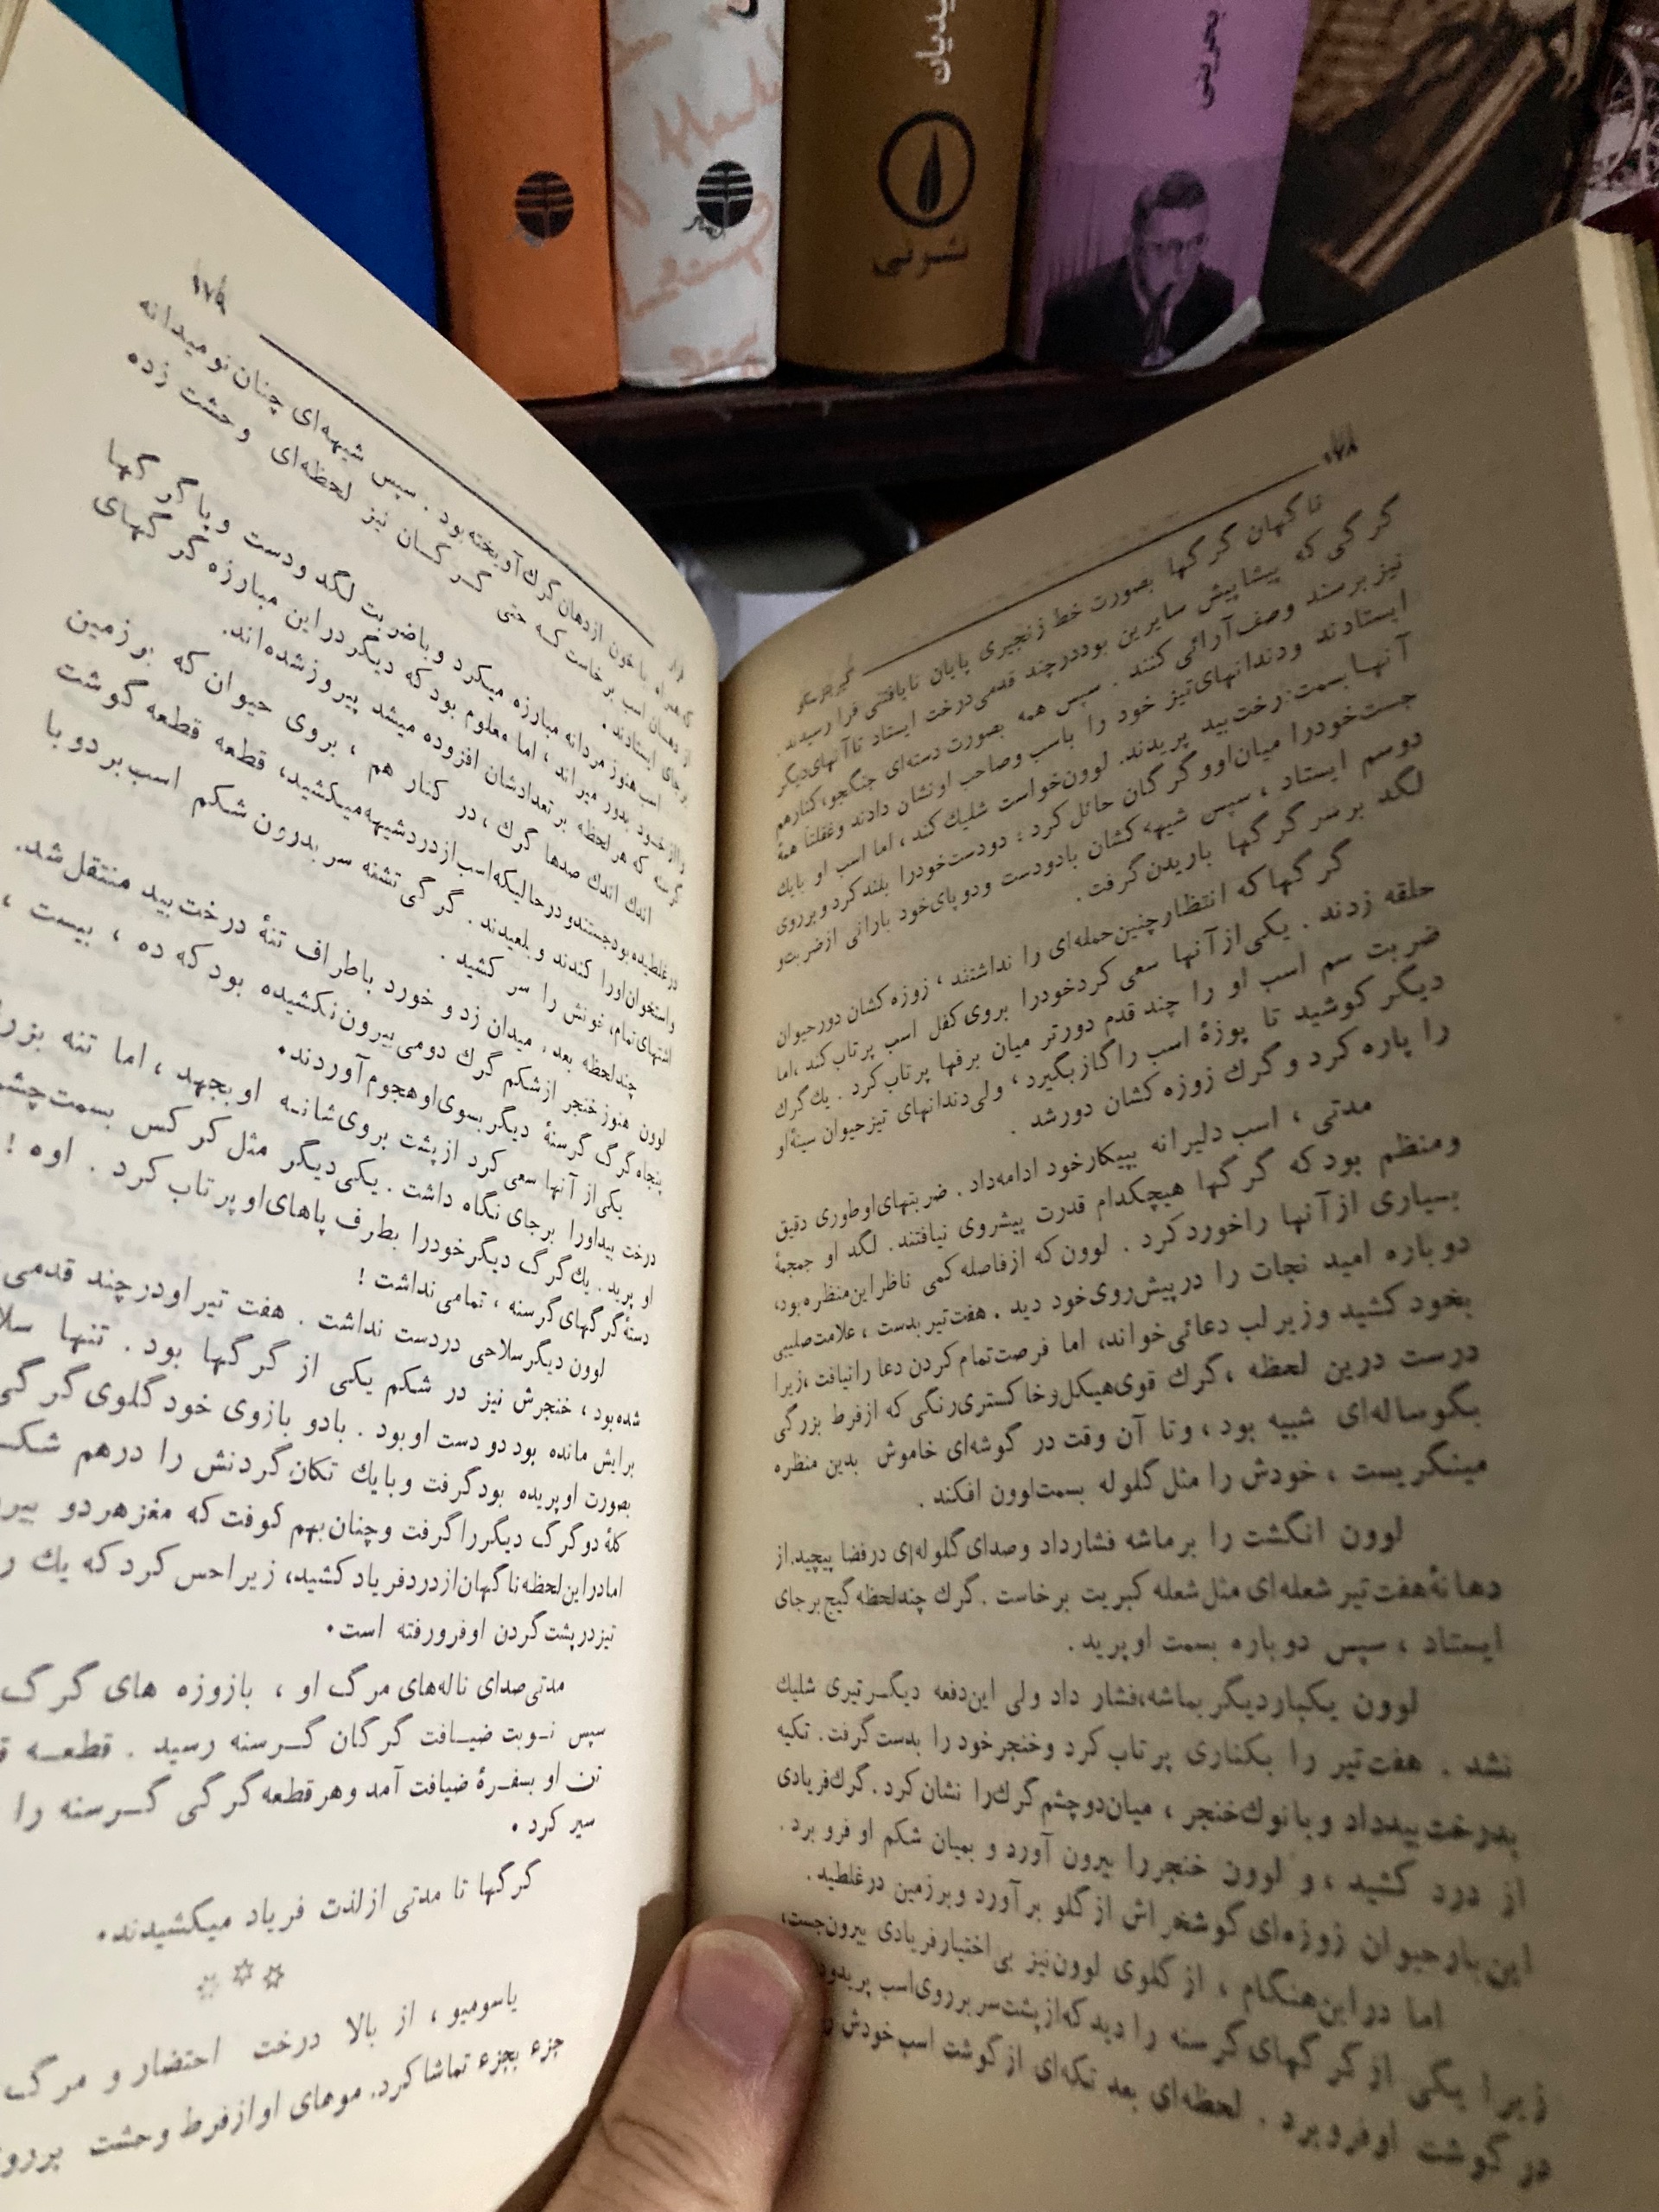 بدیان
نشر نی
بحرینی
۱۷۸
گیر بزسگو
ناگهان گرگها بصورت خط زنجیری پایان نایافتنی فرا رسیدند.
گرگی که پیشاپیش سایرین بود در چند قدمی درخت ایستاد تا آنهای دیگر
نیز برسند وصف‌آرائی کنند . سپس همه بصورت دسته‌ای جنگجو، کنار هم
ایستادند و دندانهای تیز خود را باسب وصاحب او نشان دادند وغفلتاً همهٔ
آنها بسمت درخت بید پریدند. لوون خواست شلیك کند ، اما اسب او بایك
جست خودرا میان او و گرگان حائل کرد : دو دست خودرا بلند کرد و بر روی
دوسم ایستاد ، سپس شیهه کشان بادودست ودوپای خود بارانی از ضربت و
لگد بر سر گرگها باریدن گرفت.
گرگها که انتظار چنین حمله‌ای را نداشتند ، زوزه کشان دور حیوان
حلقه زدند . یکی از آنها سعی کرد خودرا بروی کفل اسب پرتاب کند ، اما
ضربت سم اسب او را چند قدم دورتر میان برفها پرتاب کرد . یك گرك
دیگر کوشید تا پوزهٔ اسب را گاز بگیرد ، ولی دندانهای تیز حیوان سینهٔ او
را پاره کرد و گرك زوزه کشان دور شد .
مدتی ، اسب دلیرانه بپیکار خود ادامه داد . ضربتهای او طوری دقیق
ومنظم بود که گرگها هیچکدام قدرت پیشروی نیافتند. لگد او جمجمهٔ
بسیاری از آنها را خورد کرد . لوون که از فاصله کمی ناظر این منظره بود،
دوباره امید نجات را در پیش روی خود دید . هفت تیر بدست ، علامت صلیبی
بخود کشید وزیر لب دعائی خواند، اما فرصت تمام کردن دعا را نیافت ، زیرا
درست درین لحظه ، گرك قوی هیکل و خاکستری رنگی که از فرط بزرگی
بگوساله‌ای شبیه بود ، وتا آن وقت در گوشه‌ای خاموش بدین منظره
مینگریست ، خودش را مثل گلوله بسمت لوون افکند .
لوون انگشت را بر ماشه فشار داد وصدای گلوله‌ای در فضا پیچید. از
دهانهٔ هفت تیر شعله‌ای مثل شعله کبریت برخاست . گرك چند لحظه گیج برجای
ایستاد ، سپس دوباره بسمت او پرید .
لوون یکبار دیگر بماشه، فشار داد ولی این دفعه دیگر تیری شلیك
نشد . هفت تیر را بکناری پرتاب کرد و خنجر خود را بدست گرفت. تکیه
بدرخت بید داد و با نوك خنجر ، میان دو چشم گرك را نشان کرد . گرك فریادی
از درد کشید ، و لوون خنجر را بیرون آورد و بمیان شکم او فرو برد .
این بار حیوان زوزه‌ای گوشخراش از گلو بر آورد و بر زمین در غلطید .
اما در این هنگام ، از گلوی لوون نیز بی اختیار فریادی بیرون جست،
زیرا یکی از گرگهای گرسنه را دید که از پشت سر بر روی اسب پرید و د
در گوشت او فرو برد . لحظه‌ای بعد تکه‌ای از گوشت اسب خودش
۱۷۹
که همراه با خون از دهان گرك آویخته بود . سپس شیهه‌ای چنان نومیدانه
از دهان اسب برخاست که حتی گرگان نیز لحظه‌ای وحشت زده
برجای ایستادند .
اسب هنوز مردانه مبارزه میکرد و با ضربت لگد و دست و پا گرگها
را از خود بدور میراند ، اما معلوم بود که دیگر در این مبارزه گرگهای
گرسنه که هر لحظه بر تعدادشان افزوده میشد پیروز شده‌اند.
اندك اندك صدها گرك ، در کنار هم ، بروی حیوان که بر زمین
در غلطیده بود جستند و در حالیکه اسب از درد شیهه میکشید، قطعه قطعه گوشت
واستخوان اورا کندند و بلعیدند . گرگی تشنه سر بدرون شکم اسب برد و با
اشتهای تمام، خونش را سر کشید .
چند لحظه بعد، میدان زد و خورد باطراف تنهٔ درخت بید منتقل شد.
لوون هنوز خنجر از شکم گرك دومی بیرون نکشیده بود که ده ، بیست ،
پنجاه گرگ گرسنهٔ دیگر بسوی او هجوم آوردند.
یکی از آنها سعی کرد از پشت بروی شانه او بجهد ، اما تنه بزر
درخت بید اورا برجای نگاه داشت . یکی دیگر مثل کرکس بسمت چشم
او پرید . یك گرگ دیگر خودرا بطرف پاهای او پرتاب کرد . اوه !
دستهٔ گرگهای گرسنه ، تمامی نداشت !
لوون دیگر سلاحی در دست نداشت . هفت تیر او در چند قدمی
شده بود ، خنجرش نیز در شکم یکی از گرگها بود . تنها سلا
برایش مانده بود دو دست او بود . بادو بازوی خود گلوی گرگی
بصورت او پریده بود گرفت وبایك تکان گردنش را درهم شکس
کلهٔ دو گرگ دیگر را گرفت و چنان بهم کوفت که مغز هر دو بیر
اما در این لحظه ناگهان از درد فریاد کشید، زیرا حس کرد که یك
تیز در پشت گردن او فرو رفته است.
مدتی صدای ناله‌های مرگ او ، با زوزه های گرگ
سپس نوبت ضیافت گرگان گرسنه رسید . قطعه
تن او بسفرهٔ ضیافت آمد و هر قطعه گرگی گرسنه را
سیر کرد .
گرگها تا مدتی از لذت فریاد میکشیدند.
یاسومیو ، از بالا درخت احتضار و مرگ
جزء بجزء تماشا کرد. موهای او از فرط وحشت بررو